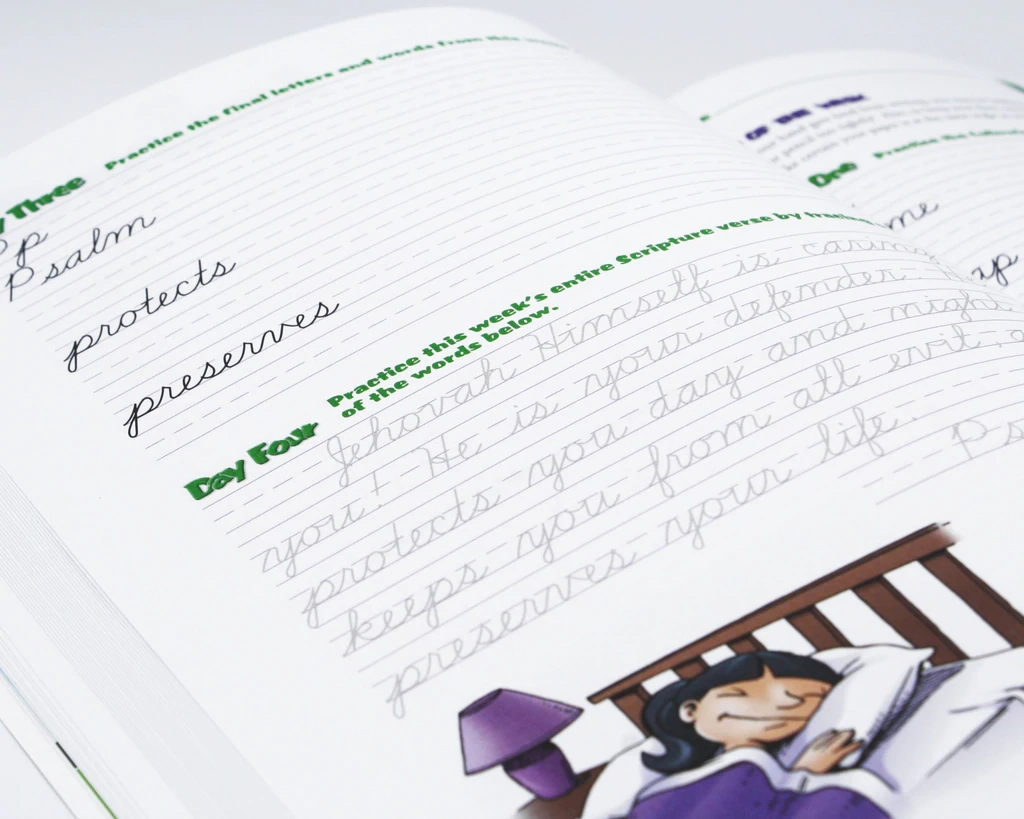 Three Practice the final letters and words from this
P p
Psalm
protects
preserves
Day Four Practice this week's entire Scripture verse by
of the words below.
Jehovah Himself is caring
you! He is your defender.
protects you day and night
keeps you from all evil,
preserves your life.
Ps
OF THE WEEK
One Practice the
me
up